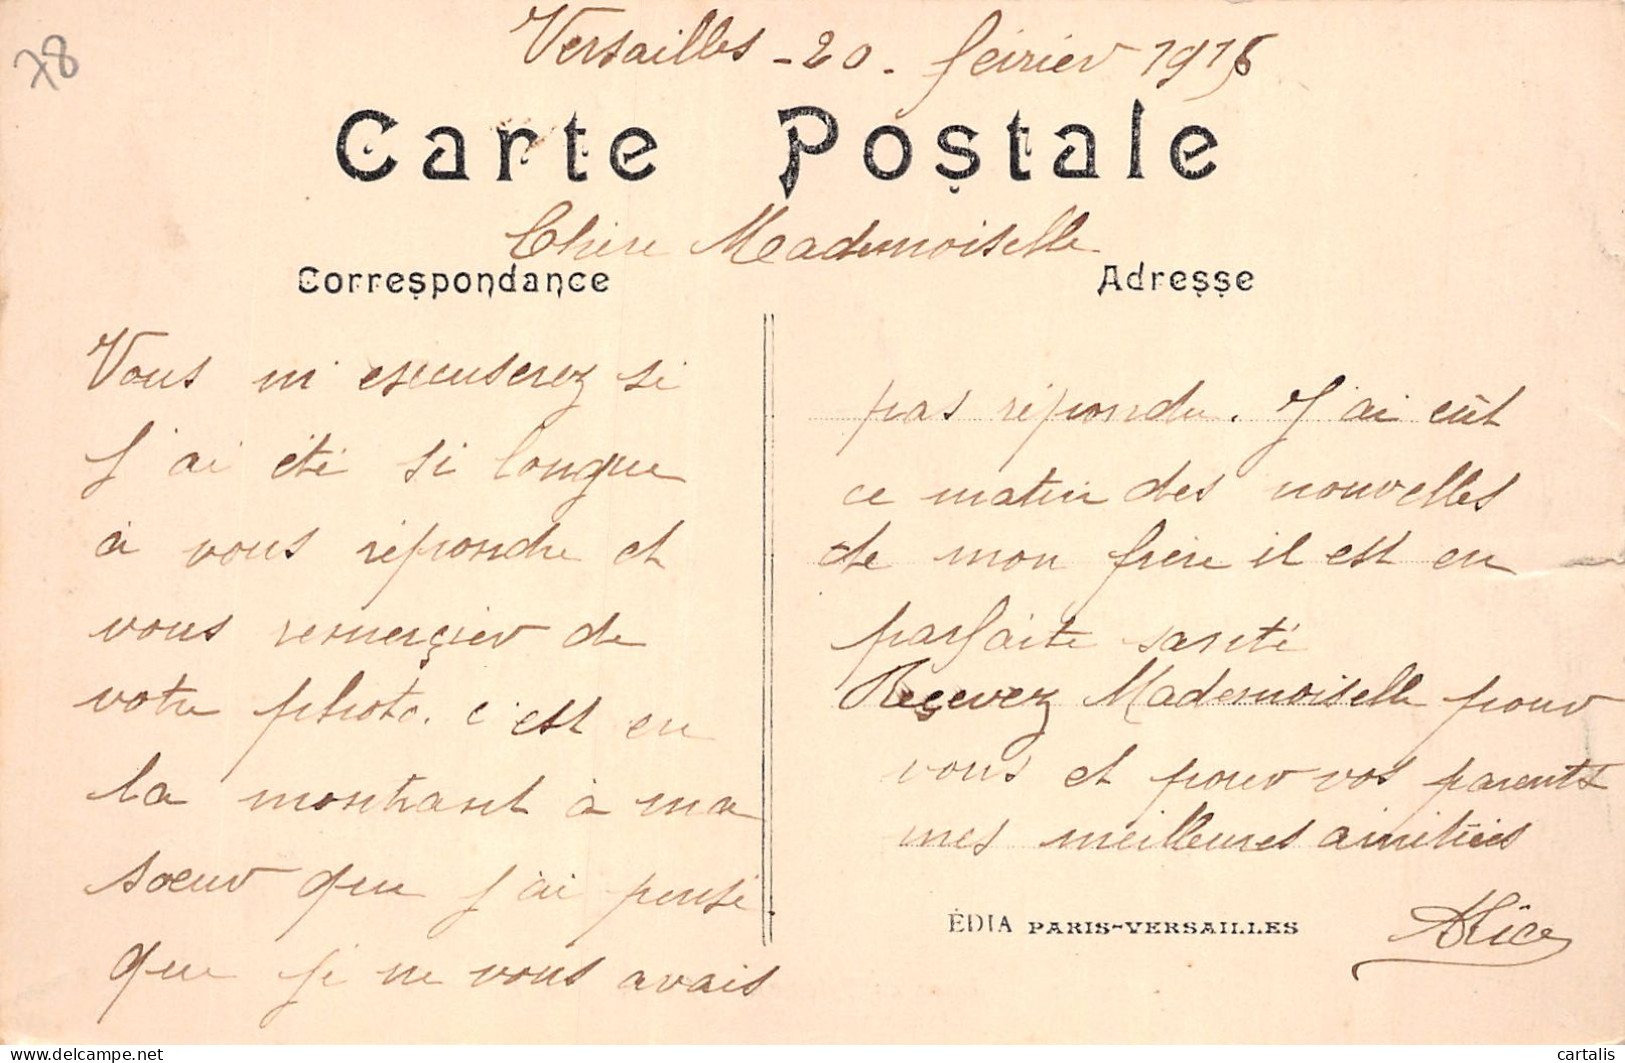 78
Versailles - 20 - féirier 1915
Carte Postale
Chère Mademoiselle
Correspondance
Adresse
Vous m'escuserez si
j'ai été si longue
à vous répondre et
vous remerçier de
votre photo. c'est en
la montrant à ma
sœur que j'ai pensé
que je ne vous avais
pas répondu. J'ai eût
ce matin des nouvelles
de mon frère il est en
parfaite santé
Reçevez Mademoiselle pour
vous et pour vos parents
mes meilleures amitiées
Alice
ÉDIA PARIS-VERSAILLES
delcampe.net
cartalis